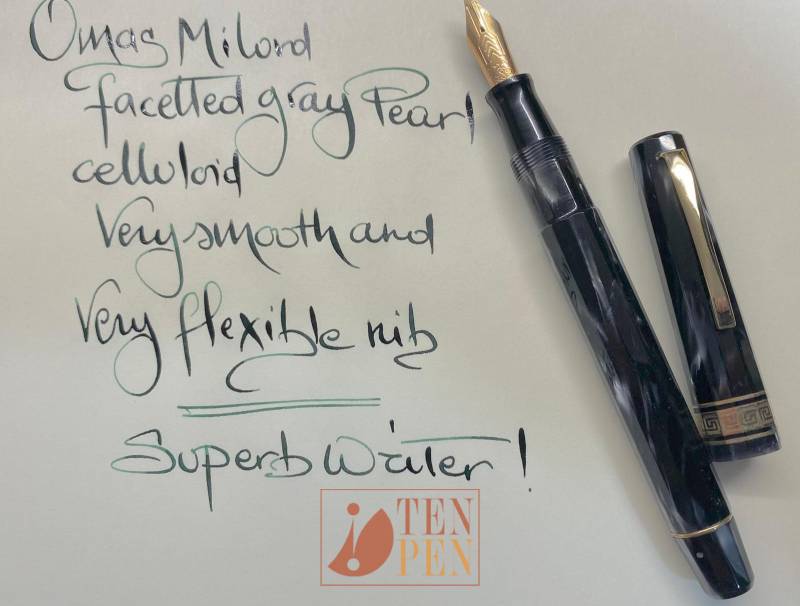 Omas Milord
facetted gray Pearl
celluloid
Very smooth and
Very flexible nib
Superb Writer!
TEN
PEN